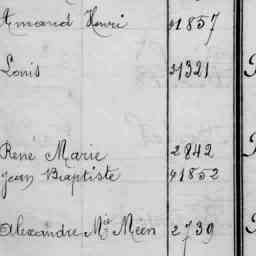 Amand Henri 41857
Louis 21321
René Marie 2842
Jean Baptiste 41852
Alexandre Mie Méen 2739